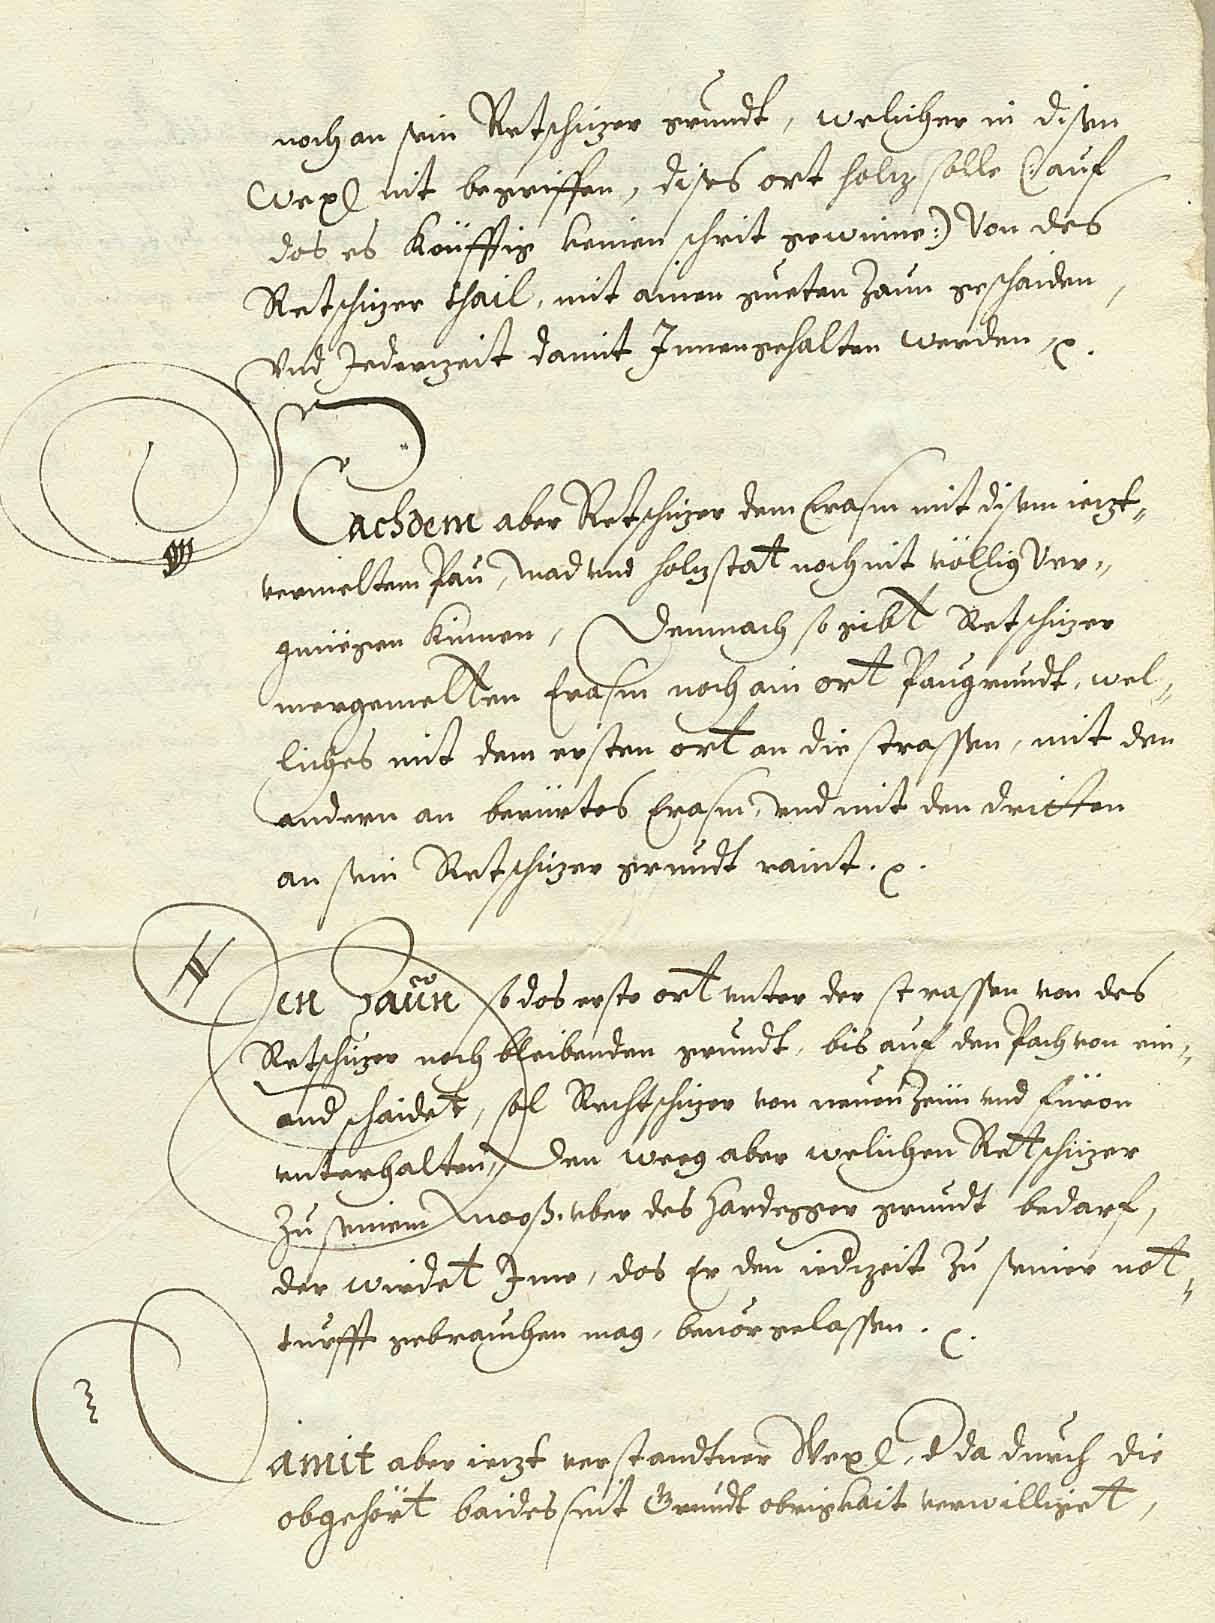 noch an sein Retschizer grundt, welicher in disen
Wexl nit begriffen, dises ort holz solle (: auf
das es Künfftig keinen schrit gewinne :) Von des
Retschizer thail, mit ainen gueten Zaun geschaiden,
Vnd Jederzeit damit Innengehalten werden, ꝛc.
Nachdem aber Retschizer dem Erasm mit disem iezt-
vermeltem Pau, mad vnd holzstat noch nit völlig Ver-
gnüegen künnen, Demnach so gibt Retschizer
mergemelten Erasm noch ain ort Paugrundt, wel-
liches mit dem ersten ort an die strassen, mit den
andern an berürtes Erasm, vnd mit den dritten
an sein Retschizer grundt raint. ꝛc.
Den Zaun so das erste ort vnter der strassen von des
Retschizer noch bleibenden grundt, bis auf den Pach von ein-
and schaidet, sol Rechtschizer von neuen Zeün vnd füron
vnterhalten, Den weeg aber welichen Retschizer
Zu seinem mooß, vber des Hardegger grundt bedarf,
der wirdet Ime, das Er den iedzeit Zu seiner not-
turfft gebrauchen mag, beuor gelassen. ꝛc.
Damit aber iezt verstandtner Wexl, d da durch die
obgehört baidesseit Grundt obrigkait verwilliget,